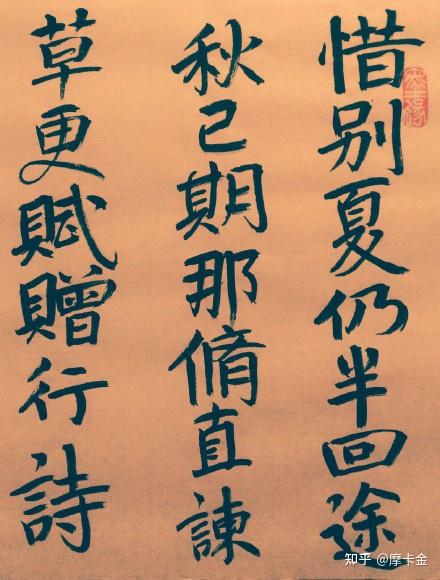 惜别夏仍半回途
秋已期那脩直諫
草更賦贈行詩
知乎 @摩卡金